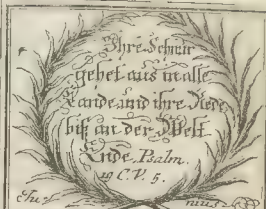 Ihre Schnur
gehet aus in alle
Lande und ihre Rede
biß an der Welt
Ende. Psalm.
19 C. V. 5.